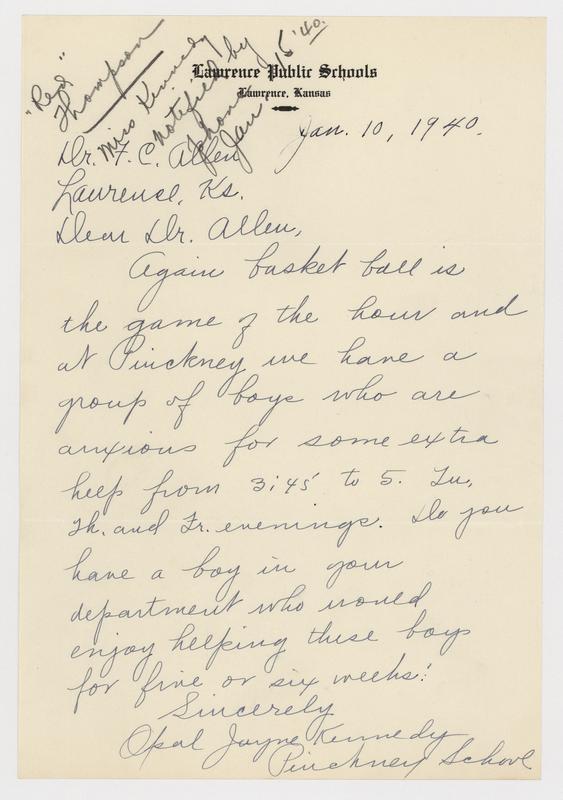 "Red"
Thompson
Miss Kennedy
notified by
phone
Jan 15 '40.
Lawrence Public Schools
Lawrence, Kansas
Jan. 10, 1940.
Dr. F. C. Allen
Lawrence, Ks.
Dear Dr. Allen,
Again basket ball is
the game of the hour and
at Pinckney we have a
group of boys who are
anxious for some extra
help from 3:45 to 5. Tu,
Th. and Fr. evenings. Do you
have a boy in your
department who would
enjoy helping these boys
for five or six weeks?
Sincerely
Opal Jayne Kennedy
Pinckney School